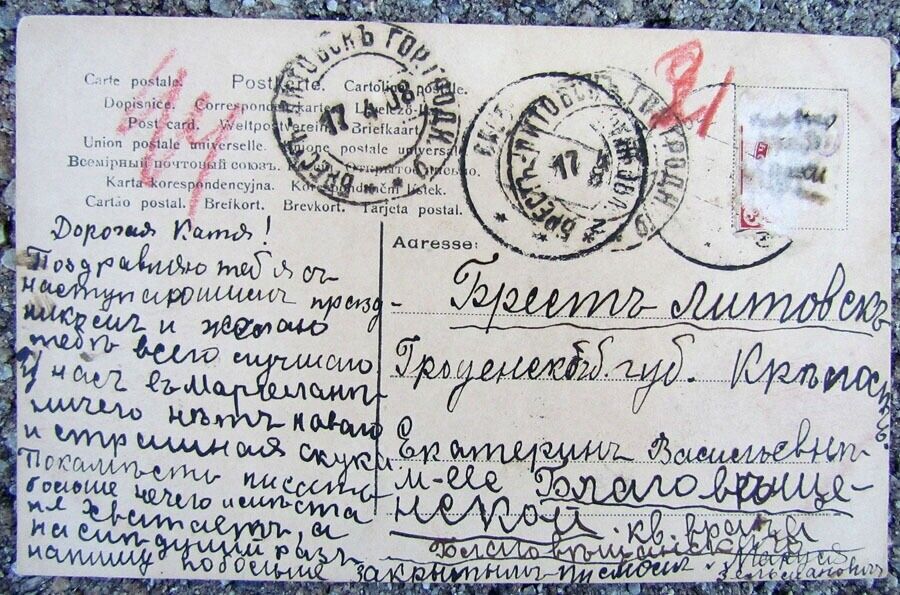 Carte postale. Postkarte. Cartolina postale.
Dopisnice. Correspondenzkarte. Levelező-
Post card. Weltpostverein. Briefkaart.
Union postale universelle. Unione postale universale.
Всемірный почтовый союзъ.
Karta korespondencyjna. Korespondenční lístek.
Cartão postal. Brefkort. Brevkort. Tarjeta postal.
БРЕСТЪ-ЛИТОВСКЪ ГОР.
17 4 08
БРЕСТЪ-ЛИТОВСКЪ
17
21
Дорогая Катя!
Поздравляю тебя съ
наступающимъ празд-
никомъ и желаю
тебѣ всего лучшаго
У насъ въ Маргеланѣ
ничего нѣтъ новаго
и страшная скука
Покамѣстъ писать
больше нечего и мѣста
не хватаетъ, а
на слѣдующій разъ
напишу побольше закрытымъ письмомъ. Маруся
Adresse:
Брестъ Литовскъ
Гродненской губ. Крѣпость
Екатеринѣ Васильевнѣ
М-lle Благовѣще-
нской кв. врача
Благовѣщенскаго